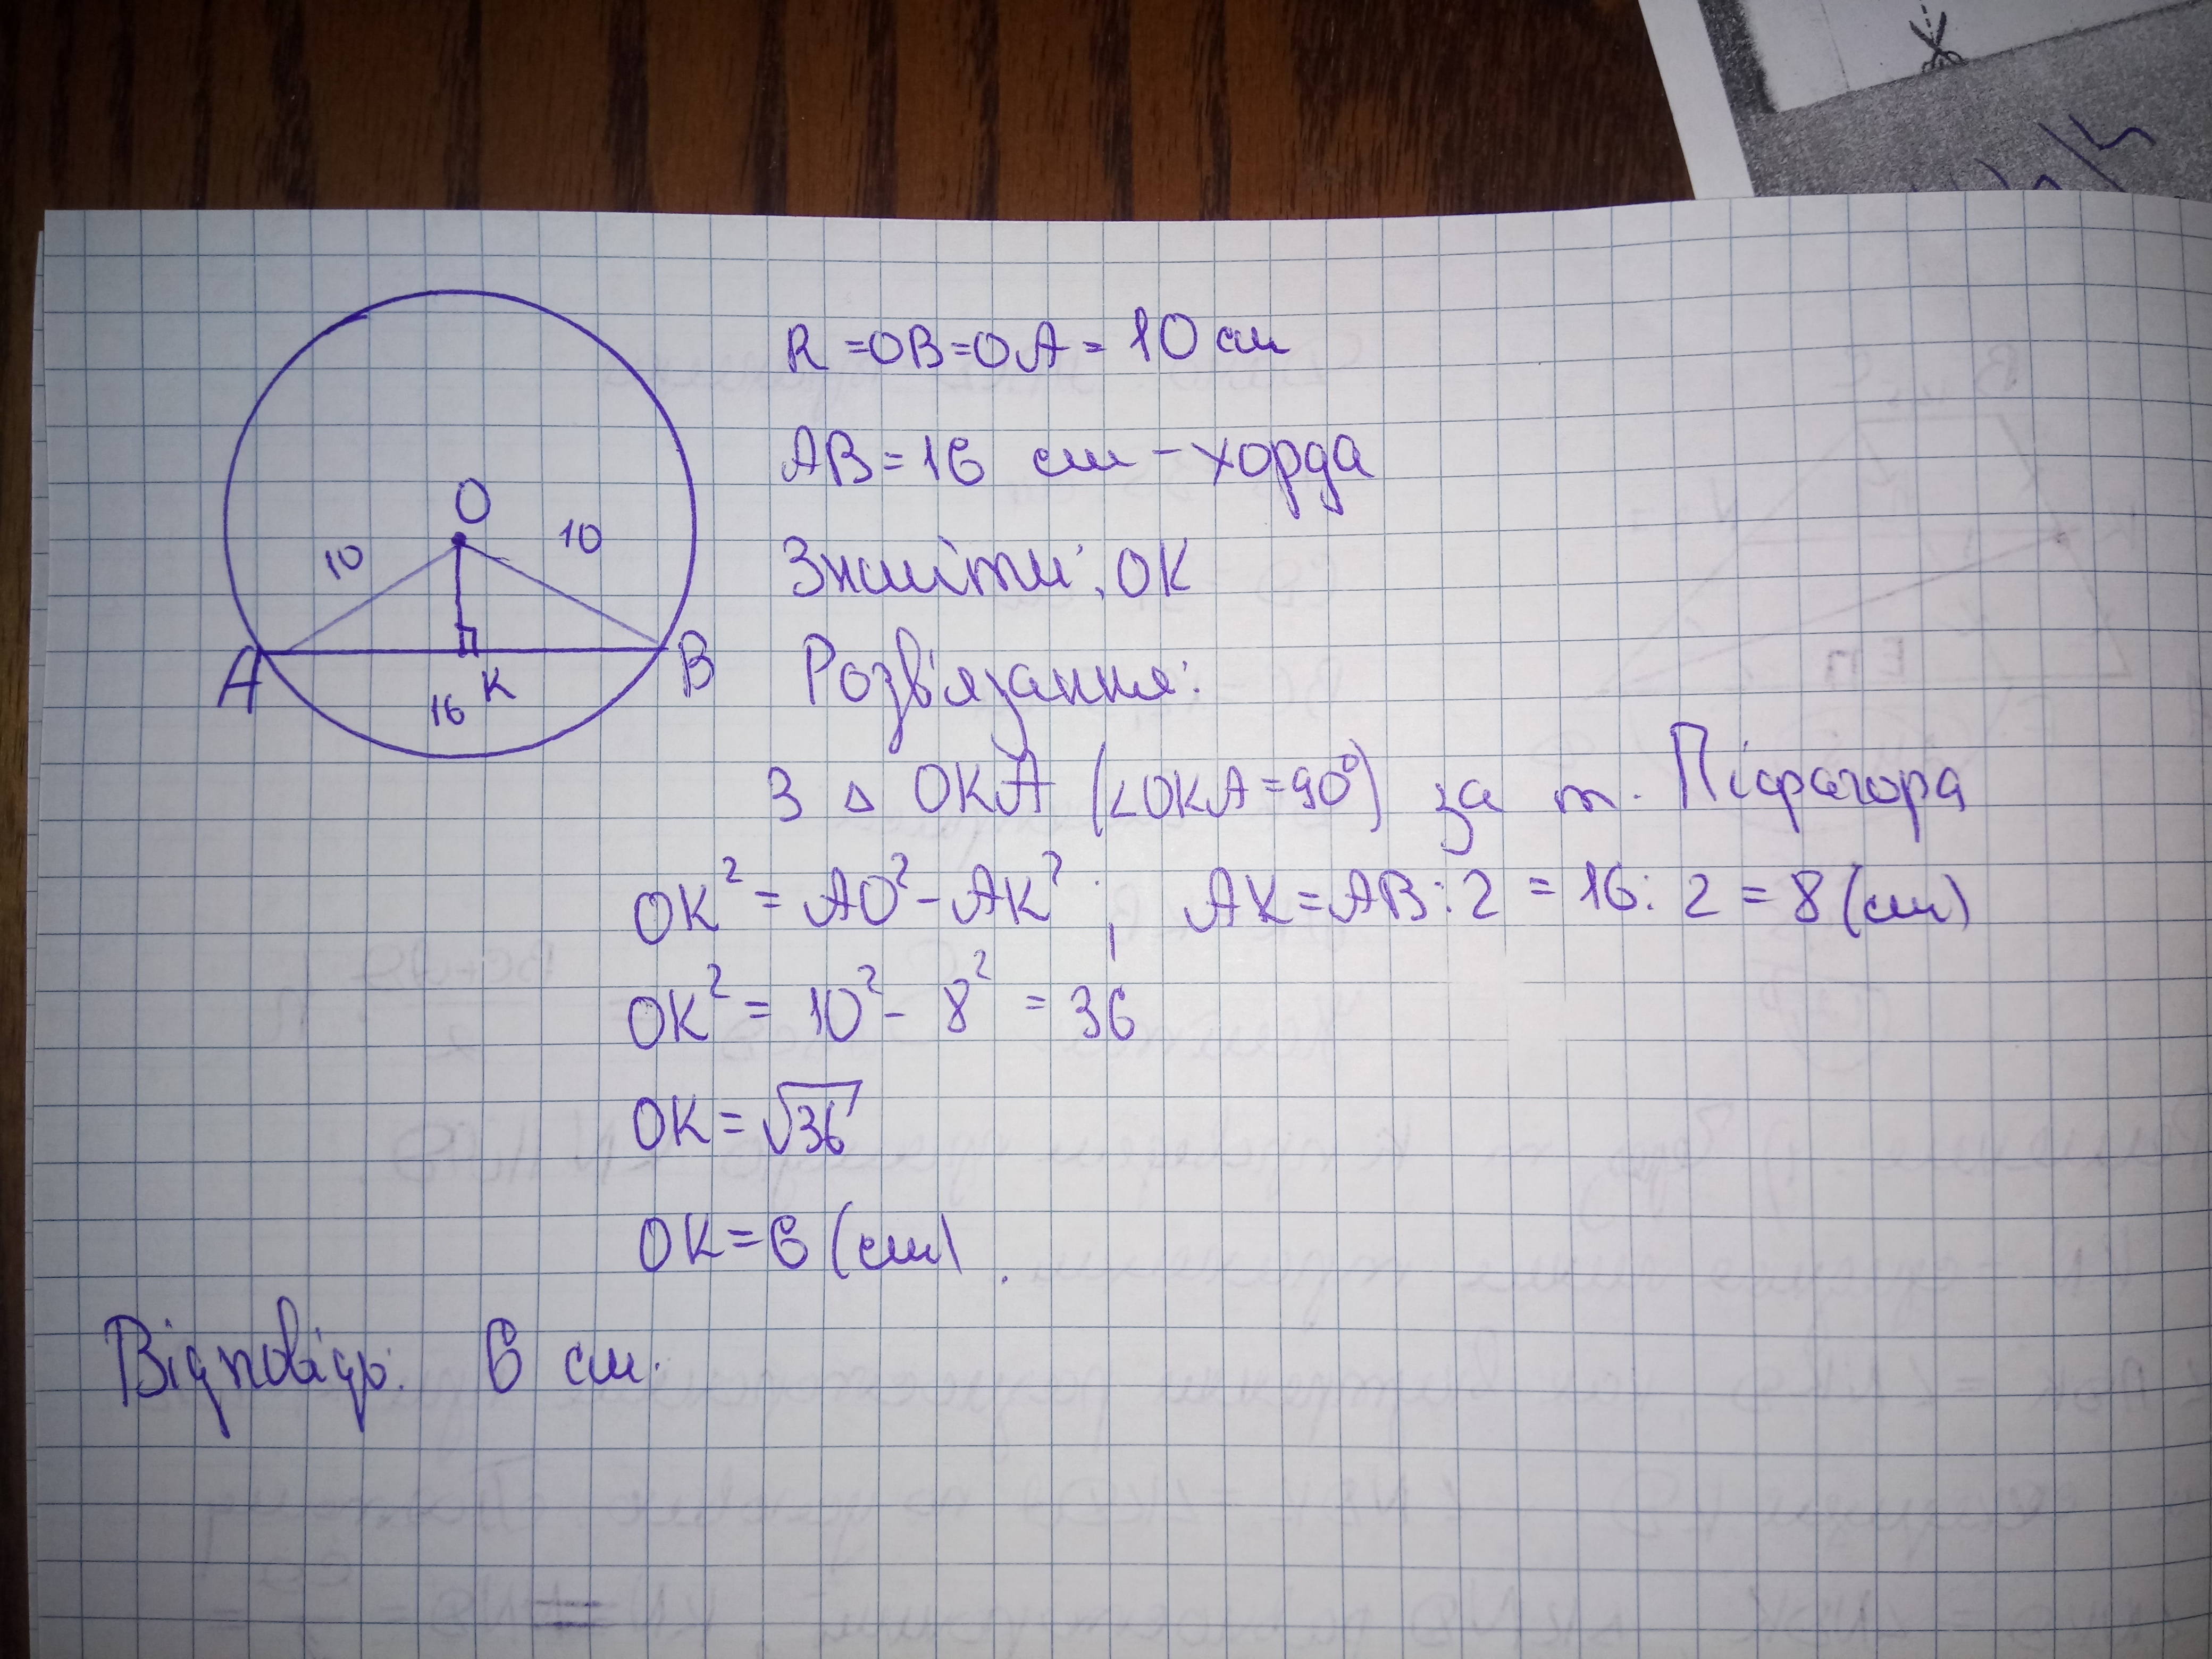 R = OB = OA = 10 см
AB = 16 см - хорда
Знайти: OK
O
10
10
A
B
K
16
Розв'язання:
З △ OKA (∠OKA = 90°) за т. Піфагора
OK² = AO² - AK² ; AK = AB : 2 = 16 : 2 = 8 (см)
OK² = 10² - 8² = 36
OK = √36
OK = 6 (см).
Відповідь: 6 см.